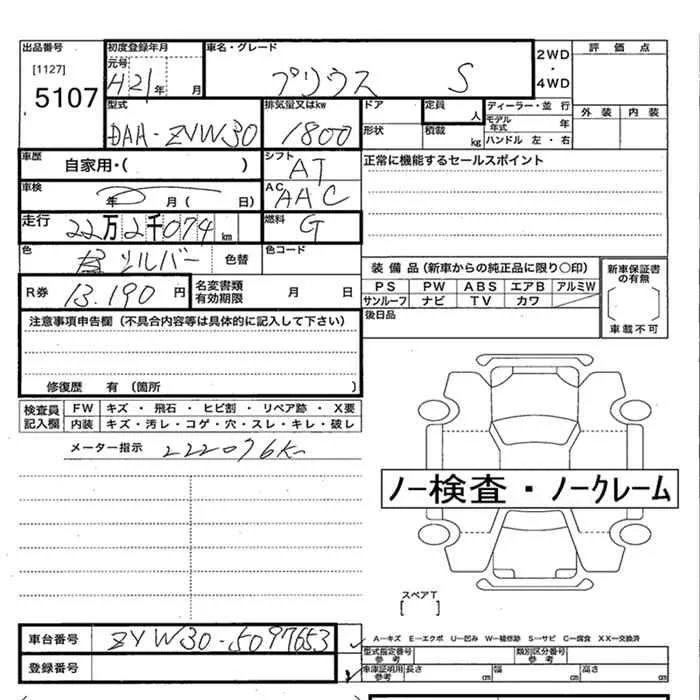 出品番号 初度登録年月 車名・グレード 2WD・4WD 評価点
[1127] 元号
5107 H21年 月 プリウス S 外装 内装
型式 排気量又はkw ドア 定員 人 ディーラー・並行
DAA-ZVW30 1800 形状 積載 kg モデル年式 年
ハンドル 左・右
車歴 自家用・( ) シフト AT 正常に機能するセールスポイント
車検 年 月( 日) AC AAC
走行 22万2千074km 燃料 G
色 シルバー 色替 色コード
装備品(新車からの純正品に限り○印) 新車保証書の有無
R券 13.190円 名変書類有効期限 月 日 PS PW ABS エアB アルミW
サンルーフ ナビ TV カワ 車載不可
注意事項申告欄(不具合内容等は具体的に記入して下さい) 後日品
修復歴 有 (箇所 )
検査員記入欄 FW キズ・飛石・ヒビ割・リペア跡・X要
内装 キズ・汚レ・コゲ・穴・スレ・キレ・破レ
メーター指示 222076K
ノー検査・ノークレーム
スペアT
[ ]
車台番号 ZVW30-5097653 A―キズ E―エクボ U―凹み W―補修跡 S―サビ C―腐食 XX―交換済
型式指定番号 参考 類別区分番号 参考
登録番号 車庫証明用参考 長さ cm 幅 cm 高さ cm